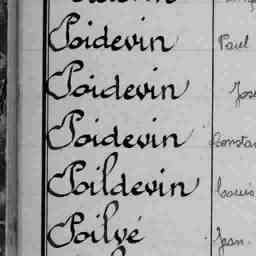 Poidevin Paul
Poidevin
Poidevin
Poildevin Louis
Poilvé Jean